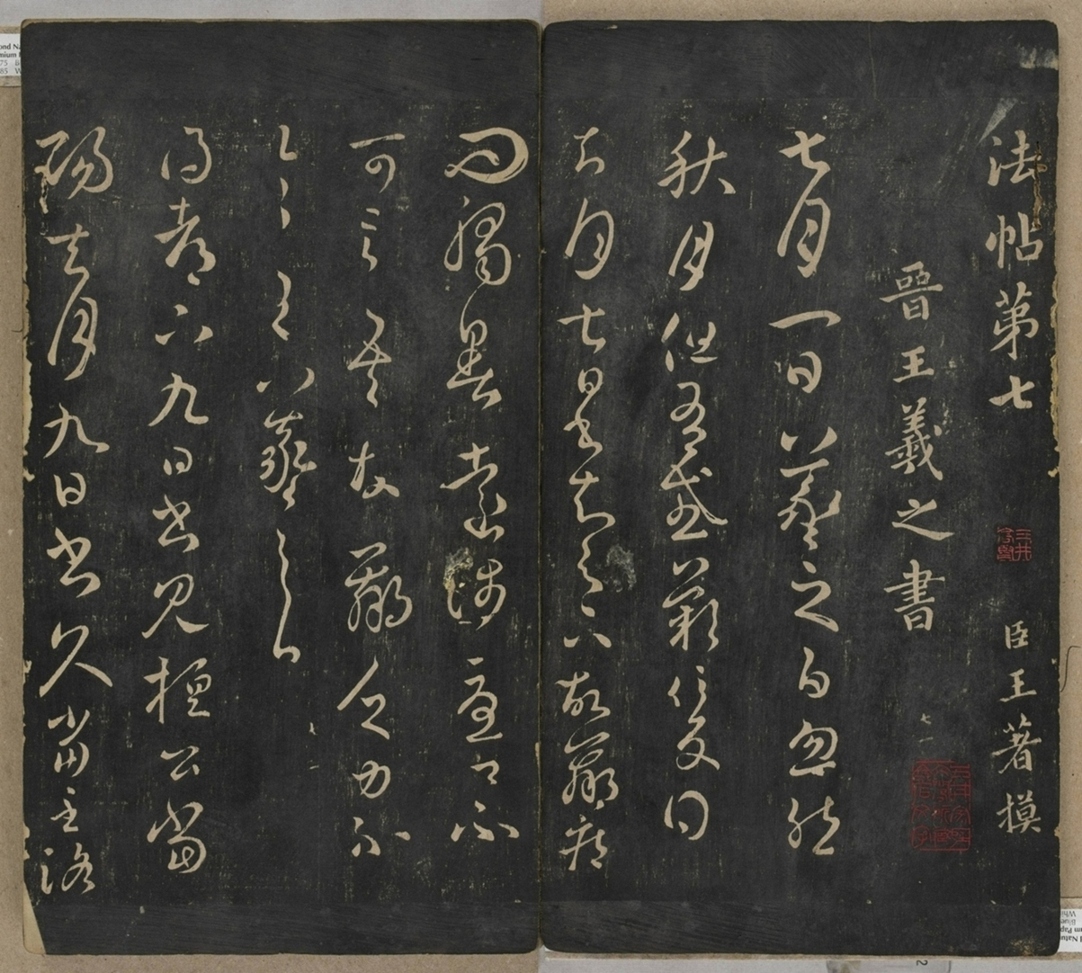 法帖第七 臣王著摸
晉王羲之書
七月一日羲之白忽然
秋月但有感歎信反得
去月七日書知足下故羸疾
問觸暑遠涉憂卿不
可言吾故羸乏力不
一一王羲之白
得都下九日書見桓公當
陽去月九日書久當至洛